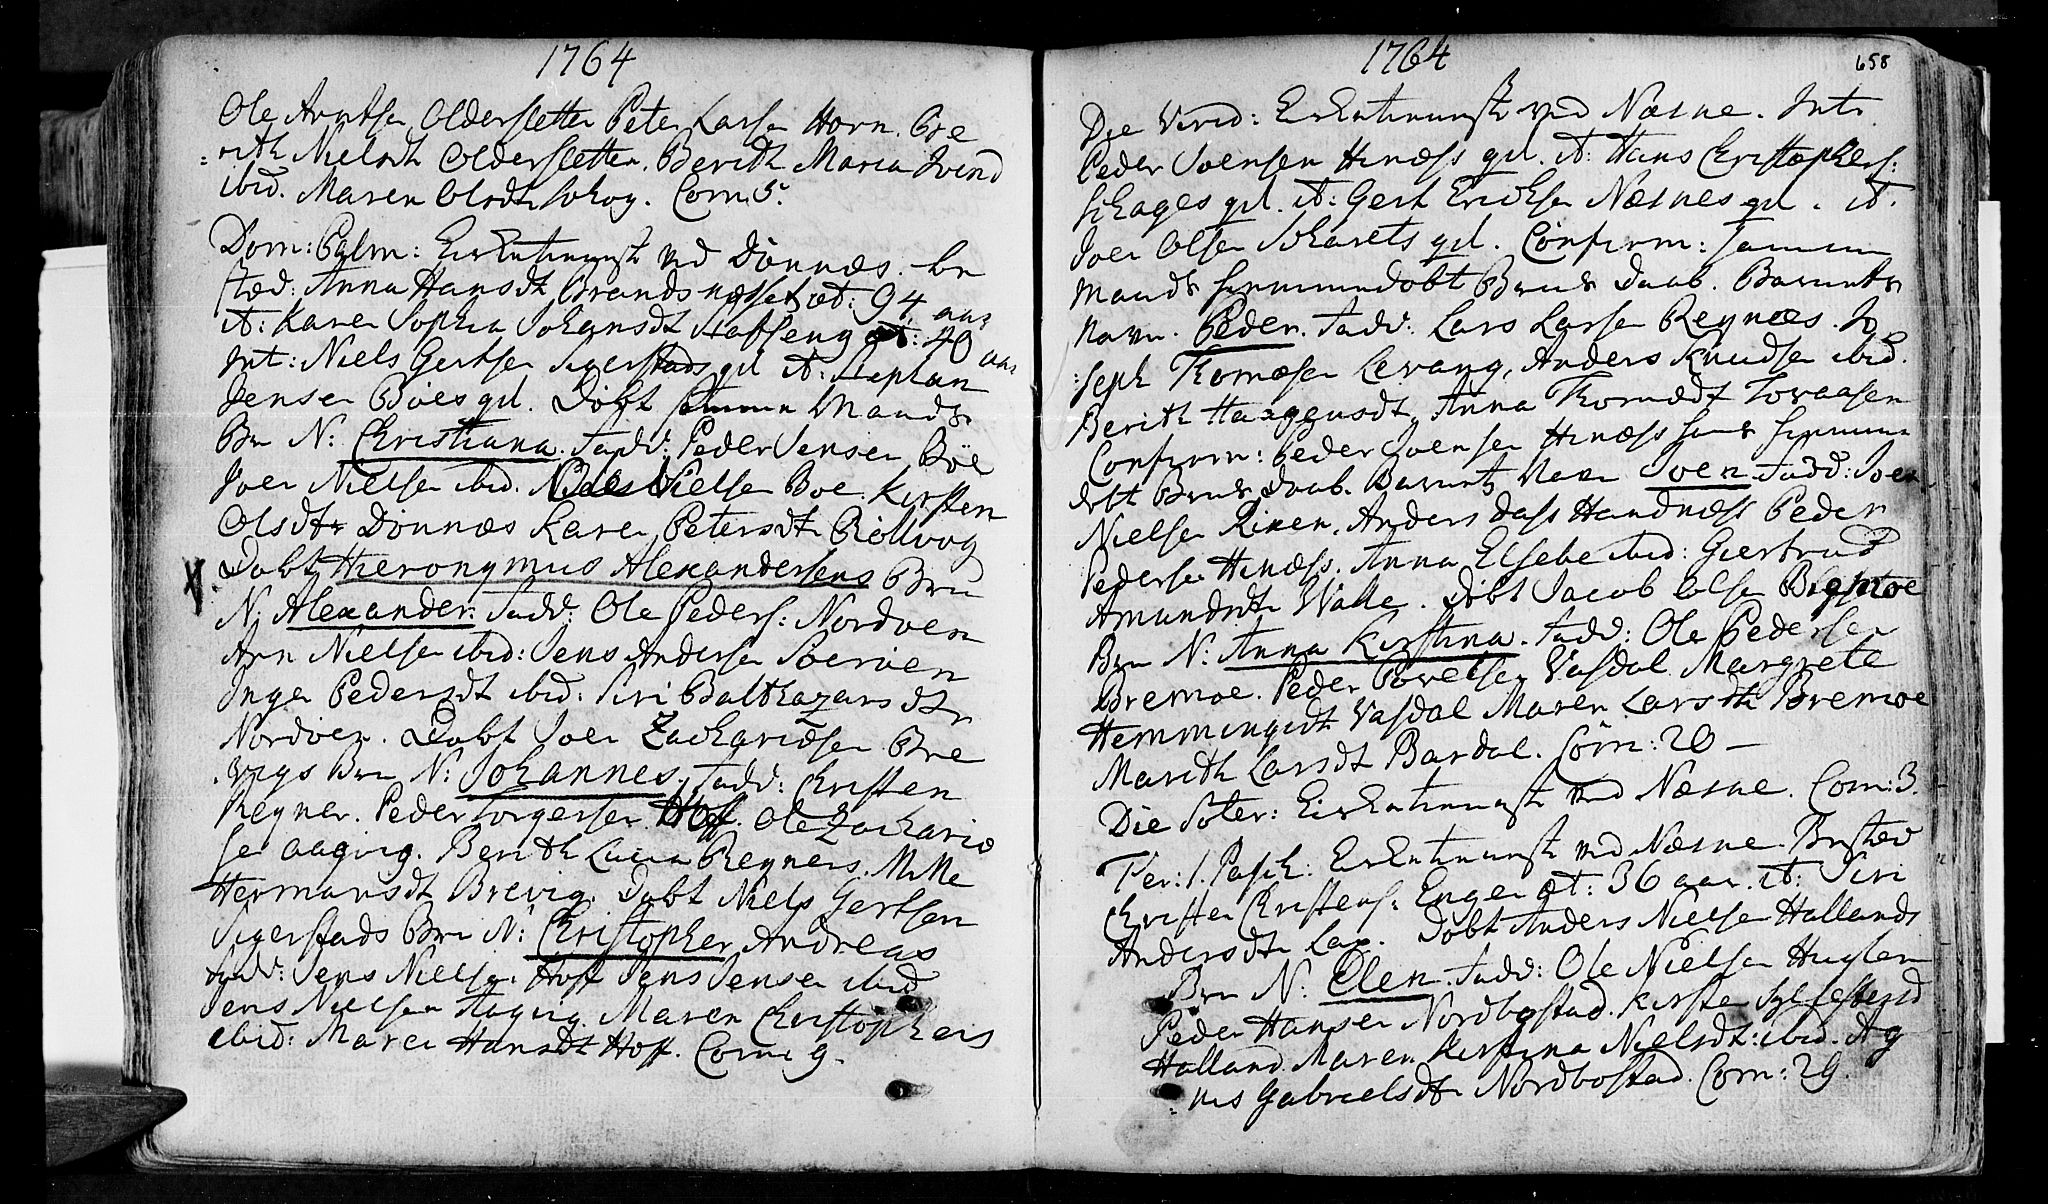 1764
Ole Arntsen Olderfletten Peter Larsen Horn. Be
=rith Nielsdtr Olderfletten. Berith Maria Svend
ibid. Maren Olsdtr Schog. Com: 5.
Dom: Palm: Eiektienniste ved Dönnes. be
sted: Anna Hansdtr Brandsnæsset æt: 94 aar
it: Karen Sophia Johansdtr Staffseng æt: 40 aar
Int: Niels Gertsen Sigerstads qd. it: Stephan
Jensen Böes qd. Döbt samme Mands
Brn N: Christiana. Fadd: Peder Jensen Böe
Joen Nielsen ibid. Niels Nielsen Boe. Kirsten
Olsdtr Dönnæs Karen Petersdtr Röllvog
Dobt Hieronymus Alexandersens Brn
N: Alexander. Fadd: Ole Peders: Nordöen
Arn Nielsen ibid: Jens Andersen Söeröen
Inger Pedersdtr ibid: Siri Balthazarsdtr
Nordöen. Dobt Joen Zachariæsen Bre
=vigs Brn N: Johannes. Fadd: Christen
Reyner. Peder Torgersen Hoff. Ole Zachariæ
sen Aagvig. Berith Lucia Reyners. M:Me
Hermansdtr Brevig. Dobt Niels Gertsen
Sigerstads Brn N: Christopher Andreas
Fadd: Jens Nielsen Hoff Jens Jensen ibid
Jens Nielsen Hagvig. Maren Christophers
ibid: Maren Hansdtr Hoff. Com: 9.
1764
658
Die Virid: ved Næsne. Intr.
Peder Joensen Hinæss qd. it: Hans Christophers:
Schages qd. it: Gert Erichsen Næsnes qd. it.
Joen Olsen Schavets qd. Confirm: samme
Mands hiemmedobt Barns Daab. Barnets
navn. Peder. Fadd: Lars Larsen Reynæs. Jo
=seph Thomæsen Levang, Anders Knudsen ibid.
Berith Haagensdtr, Anna Thomædtr Tovaasen
Confirm: Peder Joensen Hinæss hans hiemme
dobt Barns Daab. Barnetz Navn Joen Fadd: Joen
Nielsen Rinen, Anders Dass Handnæss Peder
Pedersen Hinæss. Anna Elsebe ibid: Giertrud
Amundsdtr Walle. Döbt Jacob Olsen
Brn N: Anna Kirstina. Fadd: Ole Pedersen
Bremoe. Peder Povelsen Vasdal Margrete
Hemmingsdtr Vasdal Maren Larsdtr Bremoe
Marith Larsdtr Bardal. Com: 20 –
Die Soter: ved Næsne. Com: 3.
Fer: 1. Pasch: ved Næsne. Bested
Christen Christens: Engen æt: 36 aar. it: Siri
Andersdtr Lax. Döbt Anders Nielsen Hallands
Brn N: Elen. Fadd: Ole Nielsen Huglen
Peder Hansen Nordbostad. Kirsten
Halland. Maren Kirstina Nielsdtr: ibid. Ag
=nes Gabrielsdtr Nordbostad. Com: 29.